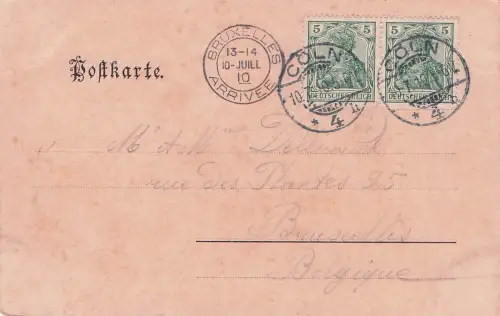 BRUXELLES
13-14
10-JUILL
10
ARRIVÉE
5 5
DEUTSCHES REICH
5 5
DEUTSCHES REICH
CÖLN
10.
* 4 n
CÖLN
* 4
Postkarte.
M et Mme
rue des Plantes 25
Bruxelles
Belgique